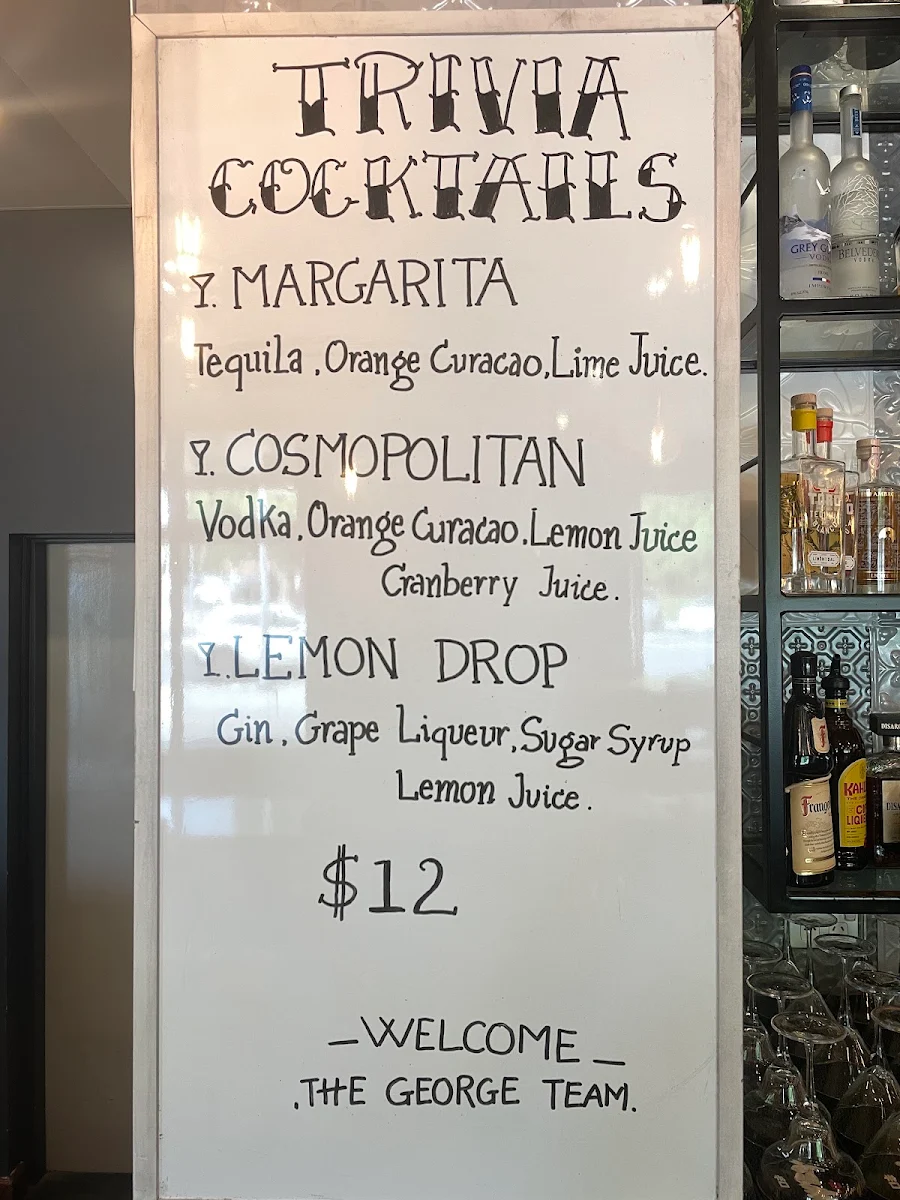 TRIVIA
COCKTAILS
MARGARITA
Tequila , Orange Curacao, Lime Juice.
COSMOPOLITAN
Vodka, Orange Curacao, Lemon Juice
Cranberry Juice.
LEMON DROP
Gin, Grape Liqueur, Sugar Syrup
Lemon Juice.
$12
_WELCOME_
.THE GEORGE TEAM.
GREY
VODKA
BELVEDERE